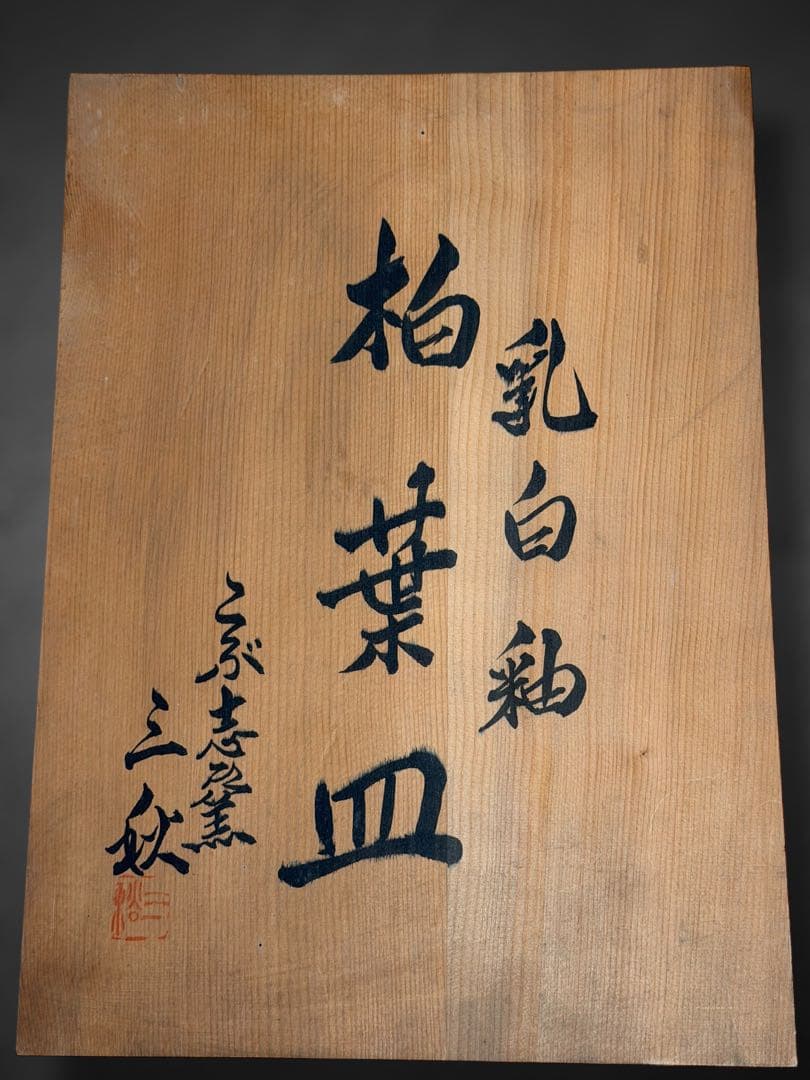 乳白釉
柏葉皿
こぶ志窯
三秋